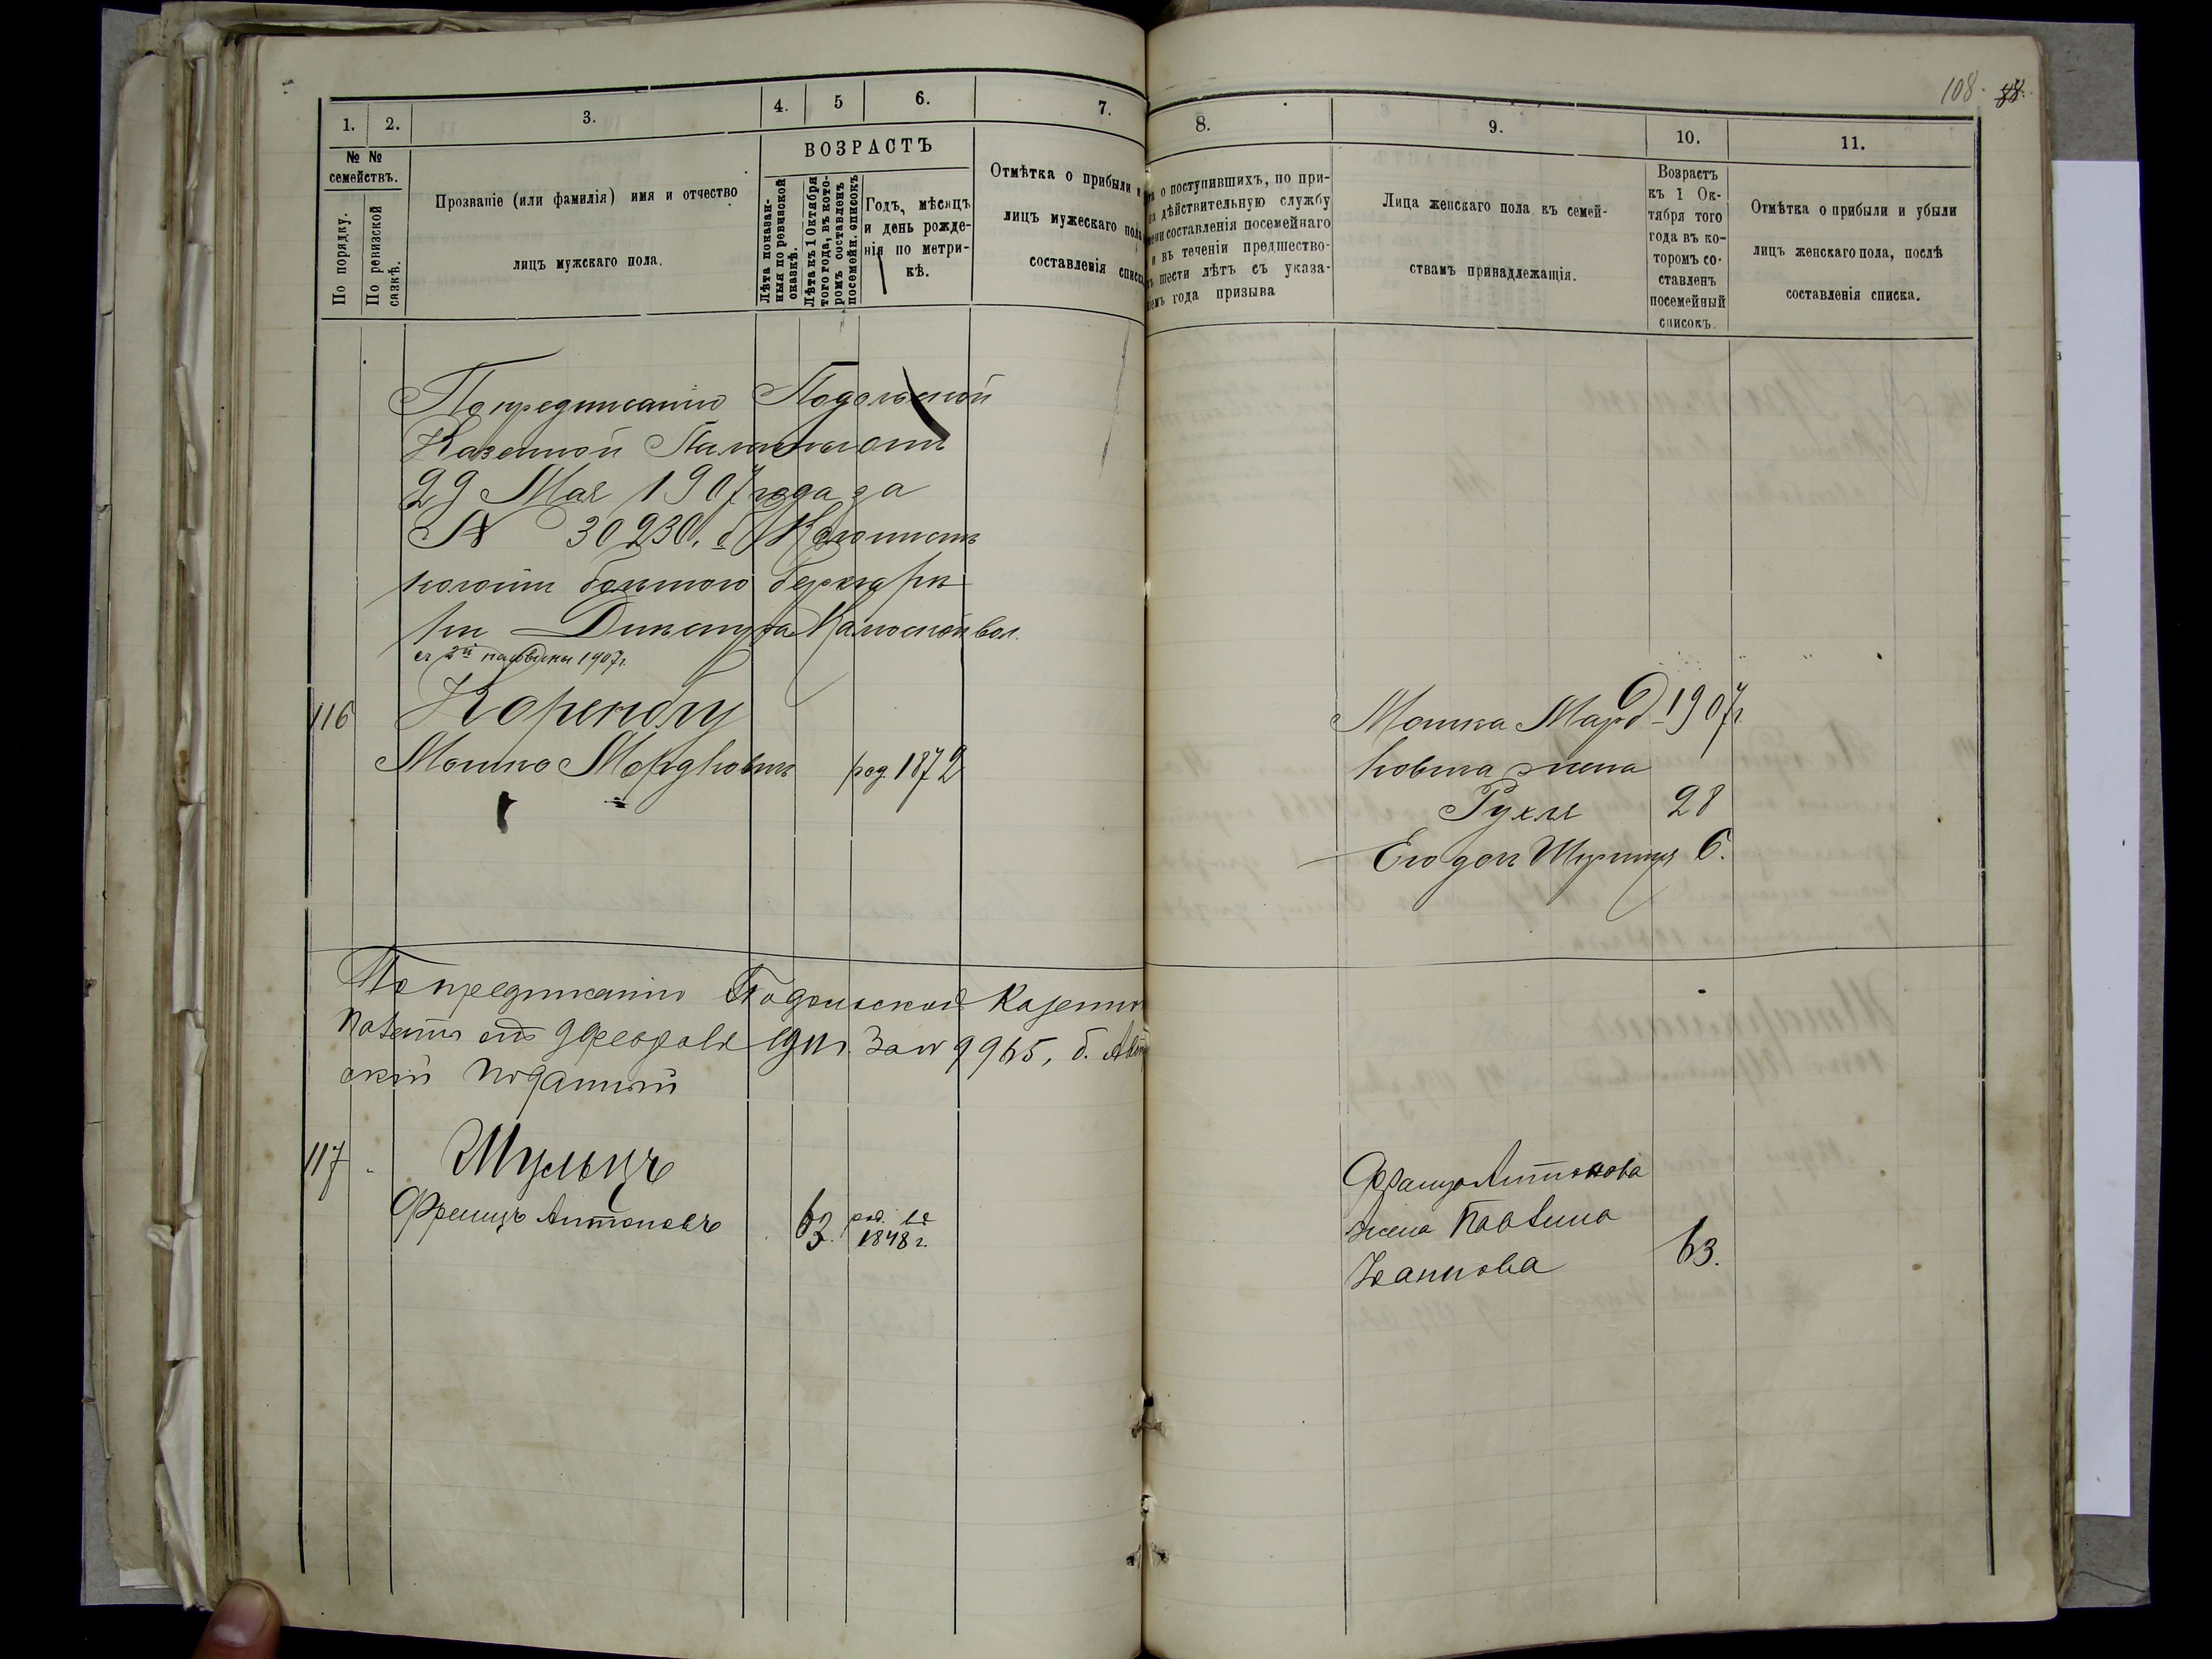 108. 88.
1. 2. 3. 4. 5 6. 7.
8. 9. 10. 11.
№ №
семействъ.
По порядку.
По ревизской
сказкѣ.
Прозваніе (или фамилія) имя и отчество
лицъ мужскаго пола.
ВОЗРАСТЪ
Лѣта показан-
ныя по ревизской
сказкѣ.
Лѣта къ 1 Октября
того года, въ кото-
ромъ составленъ
посемейн. списокъ
Годъ, мѣсяцъ
и день рожде-
нія по метри-
кѣ.
Отмѣтка о прибыли и
лицъ мужескаго пола
составленія списка
о поступившихъ, по при-
на дѣйствительную службу
составленія посемейнаго
и въ теченіи предшество-
шести лѣтъ съ указа-
года призыва
Лица женскаго пола къ семей-
ствамъ принадлежащія.
Возрастъ
къ 1 Ок-
тября того
года въ ко-
торомъ со-
ставленъ
посемейный
списокъ.
Отмѣтка о прибыли и убыли
лицъ женскаго пола, послѣ
составленія списка.
По предписанію Подольской
Казенной Палаты отъ
29 Мая 1907 года за
№ 30230. б. Колонистъ
колоніи
съ 2й половины 1907г.
116
Мошко Мордковичъ род. 1872
Мошка Морд- 1907г
ковича жена
Рухля 28
Его дочь 6.
По предписанію Подольской Казенной
Палаты отъ 9 февраля 1911г. За № 9965, б.
скій подданный
117 Шульцъ
Францъ Антоновъ 63. род. въ
1848 г.
Франца Антонова
жена Павлина
Іванова 63.